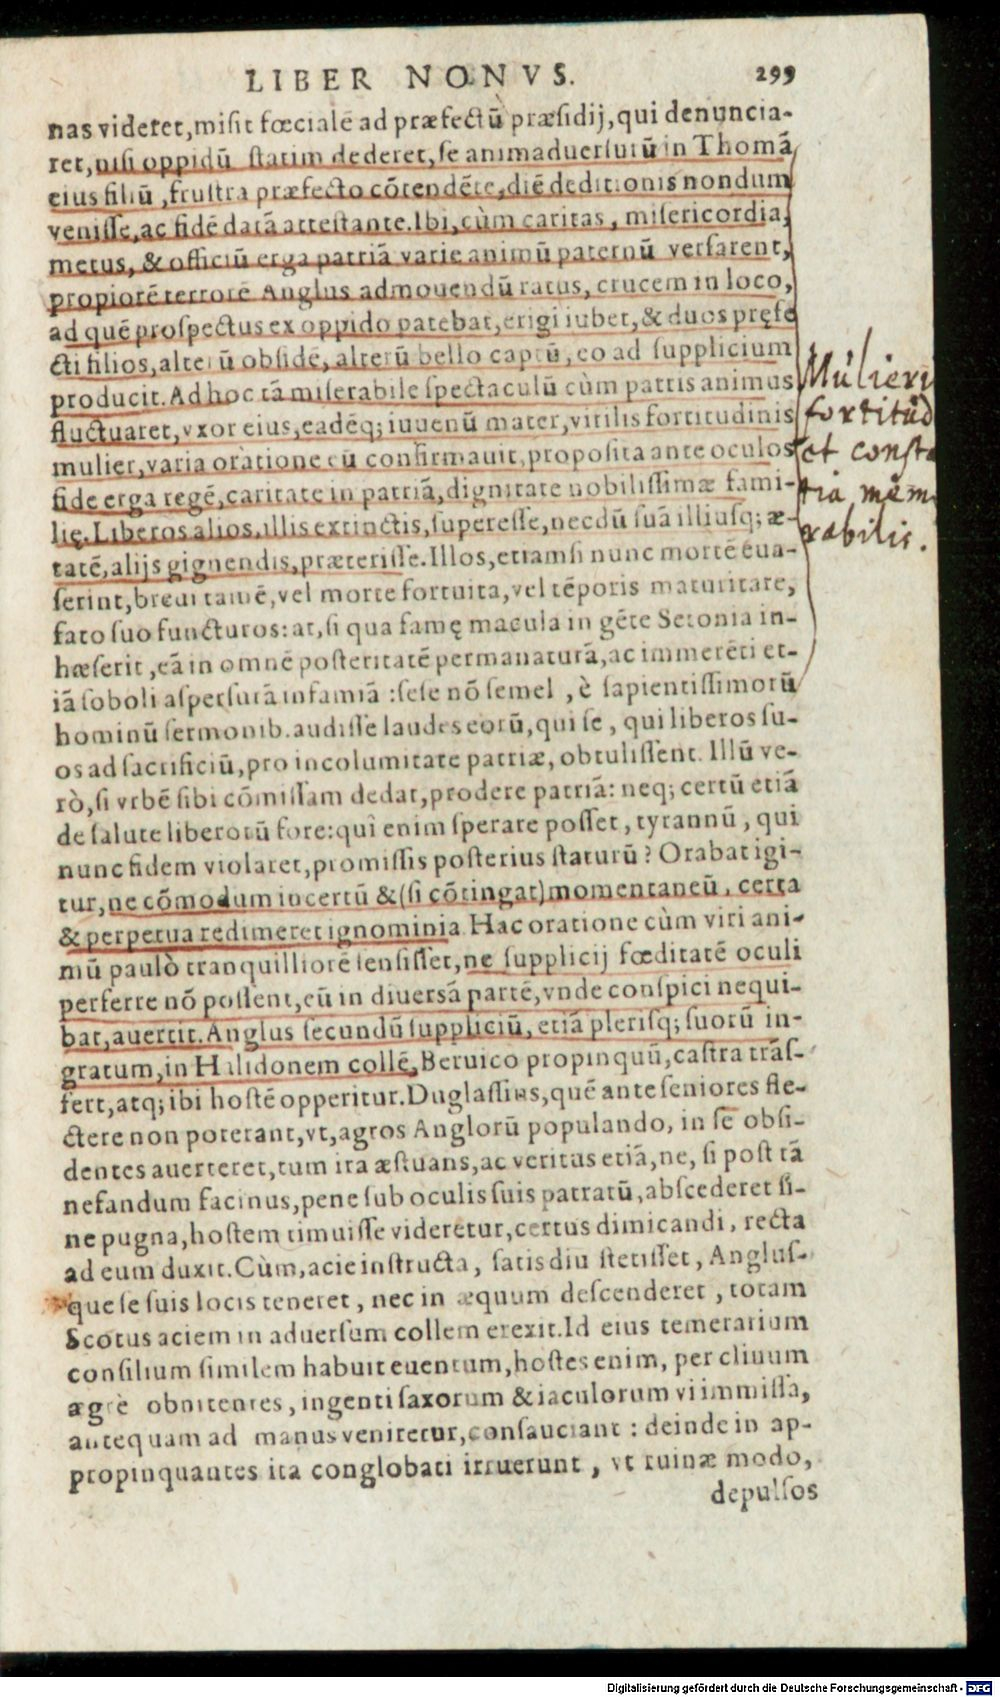 LIBER NONVS. 299
nas videret,misit fœcialē ad præfectū præsidij,qui denuncia-
ret,nisi oppidū statim dederet,se animaduersurū in Thomā
eius filiū ,frustra præfecto cōtendēte,diē deditionis nondum
venisse,ac fidē datā attestante.Ibi,cùm caritas, misericordia,
metus, & officiū erga patriā varie animū paternū versarent,
propiorē terrorē Anglus admouendū ratus, crucem in loco,
ad quē prospectus ex oppido patebat,erigi iubet,& duos pręfe
cti filios,alterū obsidē, alterū bello captū, eo ad supplicium
producit. Ad hoc tā miserabile spectaculū cùm patris animus
fluctuaret,vxor eius,eadēq; iuuenū mater,virilis fortitudinis
mulier,varia oratione eū confirmauit,proposita ante oculos
fide erga regē,caritate in patriā,dignitate nobilissimæ fami-
lię. Liberos alios,illis extinctis,superesse,necdū suā illiusq; æ-
tatē,alijs gignendis,præterisse. Illos,etiamsi nunc mortē eua-
serint,breui tamē,vel morte fortuita,vel tēporis maturitate,
fato suo functuros:at,si qua famę macula in gēte Setonia in-
hæserit ,eā in omnē posteritatē permanaturā,ac immerēti et-
iā soboli aspersurā infamiā :sese nō semel , è sapientissimorū
hominū sermonib.audisse laudes eorū,qui se , qui liberos su-
os ad sacrificiū,pro incolumitate patriæ, obtulissent. Illū ve-
rò,si vrbē sibi cōmissam dedat,prodere patriā: neq; certū etiā
de salute liberorū fore:quî enim sperare posset, tyrannū, qui
nunc fidem violaret,promissis posterius staturū? Orabat igi-
tur,ne cōmodum incertū &(si cōtingat)momentaneū, certa
& perpetua redimeret ignominia Hac oratione cùm viri ani-
mū paulò tranquilliorē sensisset,ne supplicij fœditatē oculi
perferre nō possent,eū in diuersā partē,vnde conspici nequi-
bat,auertit. Anglus secundū suppliciū, etiā plerisq; suorū in-
gratum,in Halidonem collē,Beruico propinquū,castra trās-
fert,atq; ibi hostē opperitur. Duglassius,quē ante seniores fle-
ctere non poterant,vt,agros Anglorū populando, in se obsi-
dentes auerteret,tum ira æstuans,ac veritus etiā,ne, si post tā
nefandum facinus,pene sub oculis suis patratū,abscederet si-
ne pugna,hostem timuisse videretur,certus dimicandi, recta
ad eum duxit.Cùm,acie instructa, satis diu stetisset, Anglus-
que se suis locis teneret , nec in æquum descenderet , totam
Scotus aciem in aduersum collem erexit.Id eius temerarium
consilium similem habuit euentum,hostes enim, per cliuum
ægrè obnitentes , ingenti saxorum & iaculorum vi immissa,
antequam ad manus veniretur,consauciant : deinde in ap-
propinquantes ita conglobati irruerunt , vt ruinæ modo,
depulsos
Mulieri
fortitud
et consta
tia mem
rabilis.
Digitalisierung gefördert durch die Deutsche Forschungsgemeinschaft - DFG